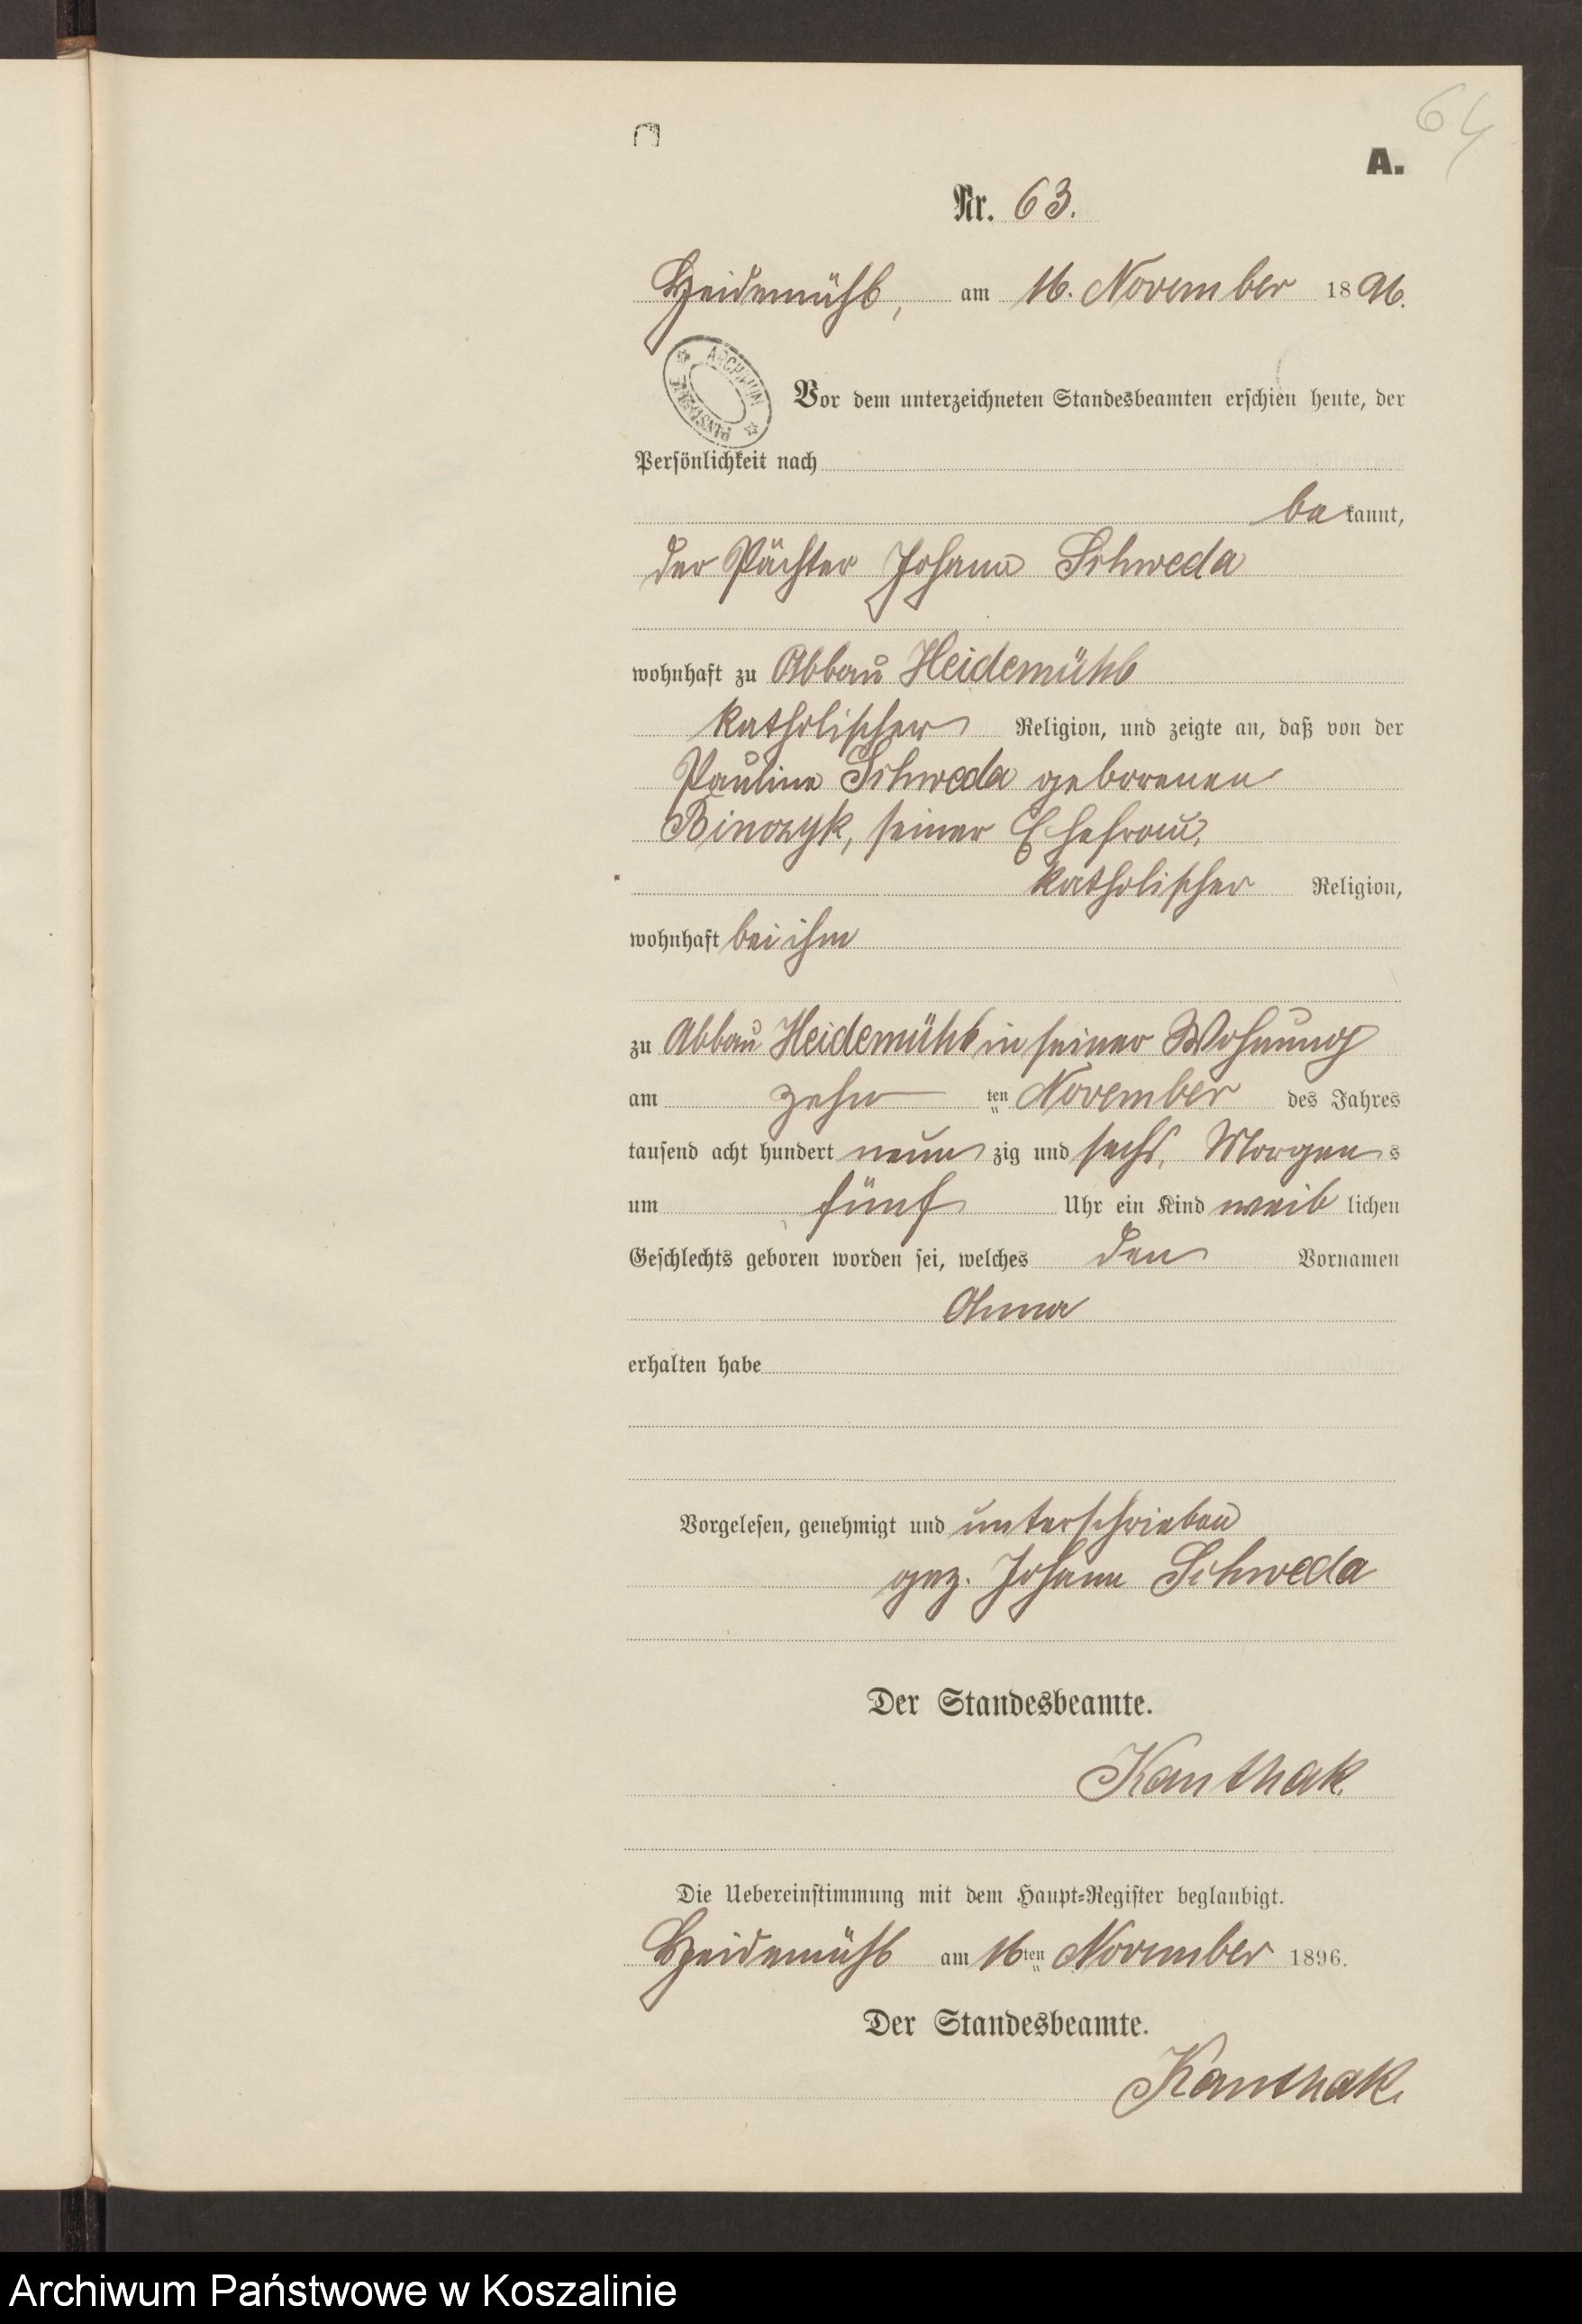 64
A.
Nr. 63.
Heidemühl, am 16. November 1896.
ARCHIWUM PAŃSTWOWE
Vor dem unterzeichneten Standesbeamten erschien heute, der
Persönlichkeit nach
be kannt,
der Pächter Johann Schweda
wohnhaft zu Abbau Heidemühl
katholischer Religion, und zeigte an, daß von der
Pauline Schweda geborenen
Binczyk, seiner Ehefrau,
katholischer Religion,
wohnhaft bei ihm
zu Abbau Heidemühl in seiner Wohnung
am zehn ten November des Jahres
tausend acht hundert neun zig und sechs, Morgen s
um fünf Uhr ein Kind weib lichen
Geschlechts geboren worden sei, welches den Vornamen
Anna
erhalten habe
Vorgelesen, genehmigt und unterschrieben
gez. Johann Schweda
Der Standesbeamte.
Kanthak.
Die Uebereinstimmung mit dem Haupt-Register beglaubigt.
Heidemühl am 16ten November 1896.
Der Standesbeamte.
Kanthak.
Archiwum Państwowe w Koszalinie